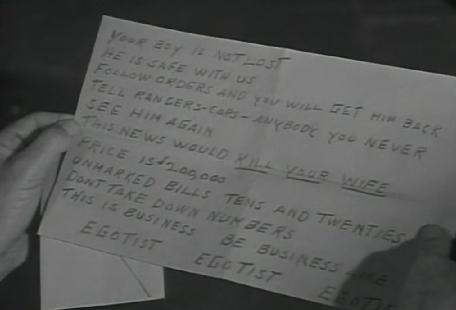 YOUR BOY IS NOT LOST
HE IS SAFE WITH US
FOLLOW ORDERS AND YOU WILL GET HIM BACK
TELL RANGERS-COPS-ANYBODY YOU NEVER
SEE HIM AGAIN
THIS NEWS WOULD KILL YOUR WIFE
PRICE IS $200,000
UNMARKED BILLS TENS AND TWENTIES
DONT TAKE DOWN NUMBERS
THIS IS BUSINESS BE BUSINESS LIKE
EGOTIST EGOTIST EGOTIST